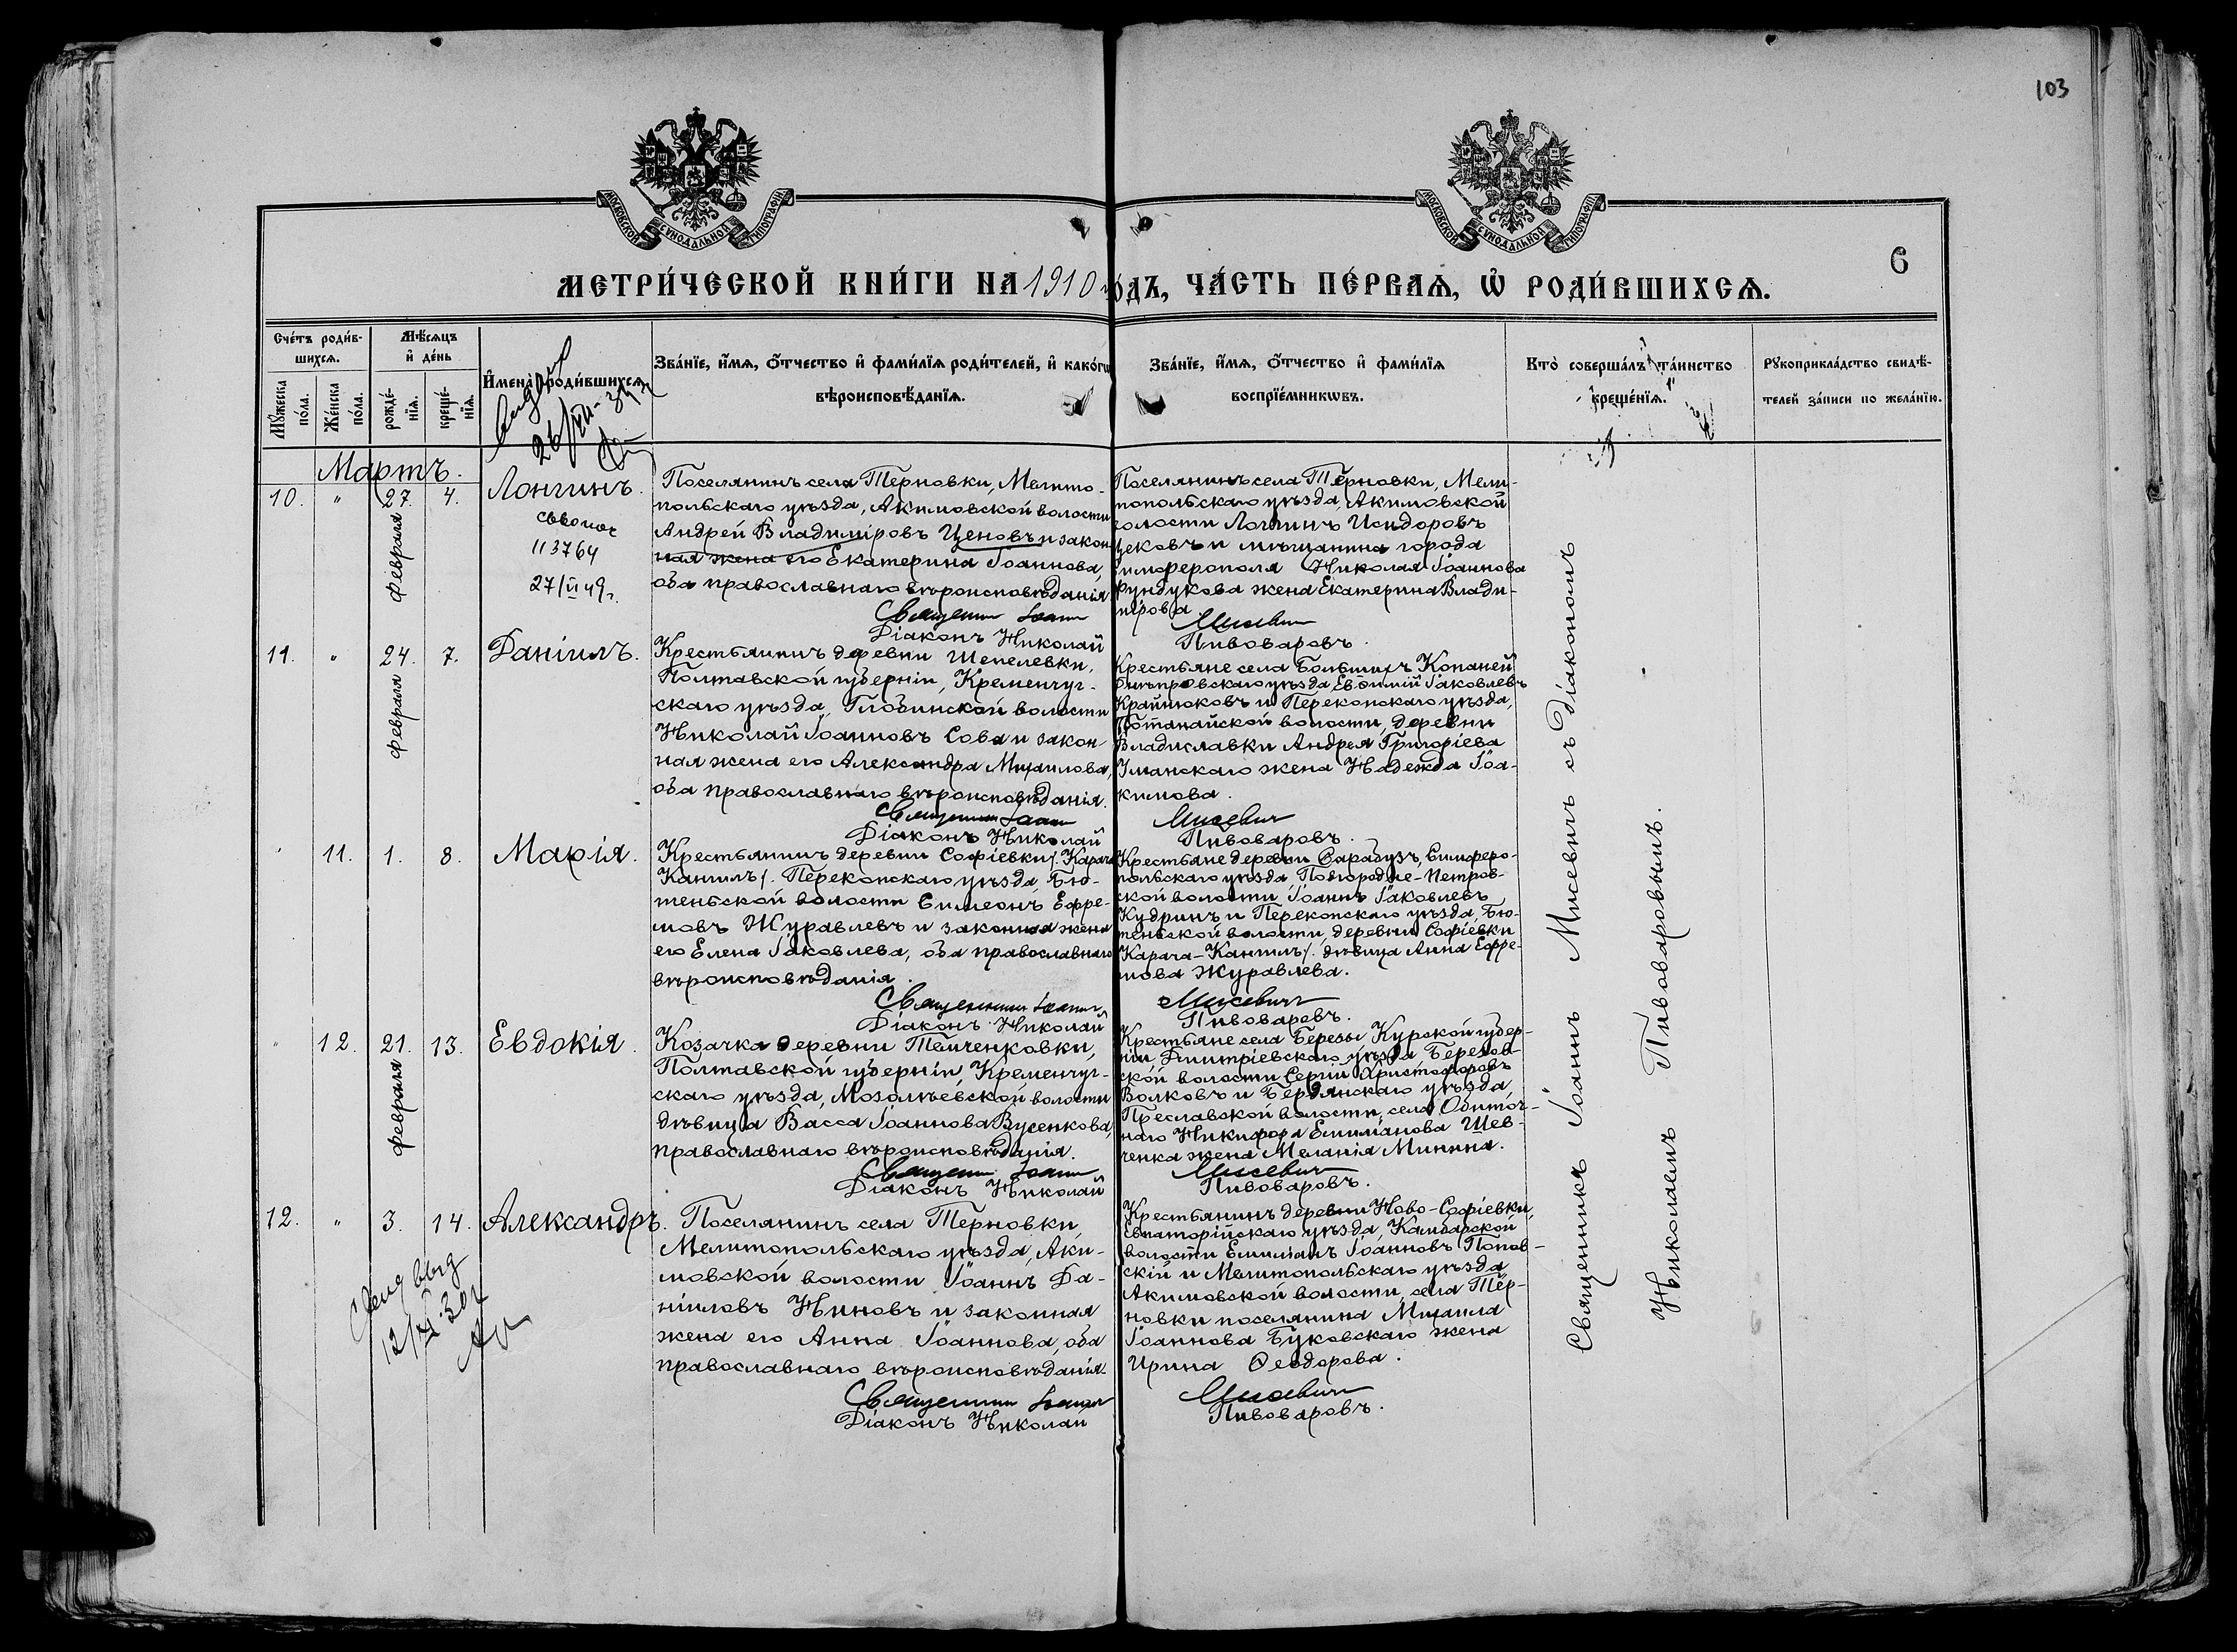 103
МОСКОВСКОЙ СѴНОДАЛЬНОЙ ТИПОГРАФІИ
МОСКОВСКОЙ СѴНОДАЛЬНОЙ ТИПОГРАФІИ
6
МЕТРИ́ЧЕСКОЙ КНИ́ГИ НА 1910 го́дъ, ЧА́СТЬ ПЕ́РВАѦ, Ѡ҆ РОДИ́ВШИХСѦ.
Сче́тъ роди́в-
шихсѧ.
Мꙋ́жеска по́ла.
Же́нска по́ла.
Мѣ́сѧцъ
и҆ де́нь
рожде́-
нїѧ.
креще́-
нїѧ.
И҆мена̀ роди́вшихсѧ.
Зва́нїе, и҆́мѧ, ѻ҆́тчество и҆ фами́лїѧ роди́телей, и҆ како́гѡ
вѣроисповѣ́данїѧ.
Зва́нїе, и҆́мѧ, ѻ҆́тчество и҆ фами́лїѧ
воспрїе́мникѡвъ.
Кто̀ соверша́лъ та́инство
креще́нїѧ.
Рꙋкоприкла́дство свидѣ́-
телей за́писи по жела́нїю.
Мартъ.
10. " 27. 4.
февраля
Лонгинъ.
113764
27/II 49 г.
Поселянинъ села Терновки, Мелито-
польскаго уѣзда, Акимовской волости
Андрей Владиміровъ Ценовъ и закон-
ная жена его Екатерина Іоаннова,
оба православнаго вѣроисповѣданія
Священникъ Іоаннъ
Діаконъ Николай
Поселянинъ села Терновки, Мели-
топольскаго уѣзда, Акимовской
волости Логгинъ Исидоровъ
Цековъ и мѣщанина города
Симферополя Николая Іоаннова
Фундукова жена Екатерина Влади-
мірова
Мисевичъ
Пивоваровъ.
11. " 24. 7.
февраля
Даніилъ.
Крестьянинъ деревни Шепелевки,
Полтавской губерніи, Кременчуг-
скаго уѣзда, Глобинской волости
Николай Іоанновъ Сова и закон-
ная жена его Александра Михаилова,
оба православнаго вѣроисповѣданія.
Священникъ Іоаннъ
Діаконъ Николай
Крестьяне села Большихъ Копаней
Днѣпровскаго уѣзда, Евѳимій Іаковлевъ
Крайнюковъ и Перекопскаго уѣзда,
волости, деревни
Владиславки Андрея Григоріева
Уманскаго жена Надежда Іоа-
кимова.
Мисевичъ
Пивоваровъ.
" 11. 1. 8.
Марія.
Крестьянинъ деревни Софіевки /. Карача
Кангилъ /. Перекопскаго уѣзда, Бю-
теньской волости Симеонъ Ефре-
мовъ Журавлевъ и законная жена
его Елена Іаковлева, оба православнаго
вѣроисповѣданія.
Священникъ Іоаннъ
Діаконъ Николай
Крестьяне деревни Сарабузъ, Симферо-
польскаго уѣзда, Подгородне-Петров-
ской волости, Іоаннъ Іаковлевъ
Кудринъ и Перекопскаго уѣзда, Бю-
теньской волости, деревни Софіевки
Карача-Кангилъ /. дѣвица Анна Ефре-
мова Журавлева.
Мисевичъ
Пивоваровъ.
" 12. 21. 13.
февраля
Евдокія.
Козачка деревни Темченковки,
Полтавской губерніи, Кременчуг-
скаго уѣзда, Мозолѣевской волости
дѣвица Васса Іоаннова Вусенкова,
православнаго вѣроисповѣданія.
Священникъ Іоаннъ
Діаконъ Николай
Крестьяне села Березы Курской губер-
ніи, Дмитріевскаго уѣзда Березов-
ской волости Сергій Христофоровъ
Волковъ и Бердянскаго уѣзда,
Преславской волости, села Обиточ-
наго Никифора Емиліанова Шев-
ченка жена Меланія Минина.
Мисевичъ
Пивоваровъ.
12. " 3. 14.
Александръ.
Поселянинъ села Терновки,
Мелитопольскаго уѣзда, Аки-
мовской волости Іоаннъ Да-
ніиловъ Ниновъ и законная
жена его Анна Іоаннова, оба
православнаго вѣроисповѣданія.
Священникъ Іоаннъ
Діаконъ Николай
Крестьянинъ деревни Ново-Софіевки,
Евпаторійскаго уѣзда, Камбарской
волости Емиліанъ Іоанновъ Попов-
скій и Мелитопольскаго уѣзда
Акимовской волости, села Тер-
новки поселянина Михаила
Іоаннова Буковскаго жена
Ирина Ѳеодорова.
Мисевичъ
Пивоваровъ.
Священникъ Іоаннъ Мисевичъ съ діакономъ
Николаемъ Пивоваровымъ.